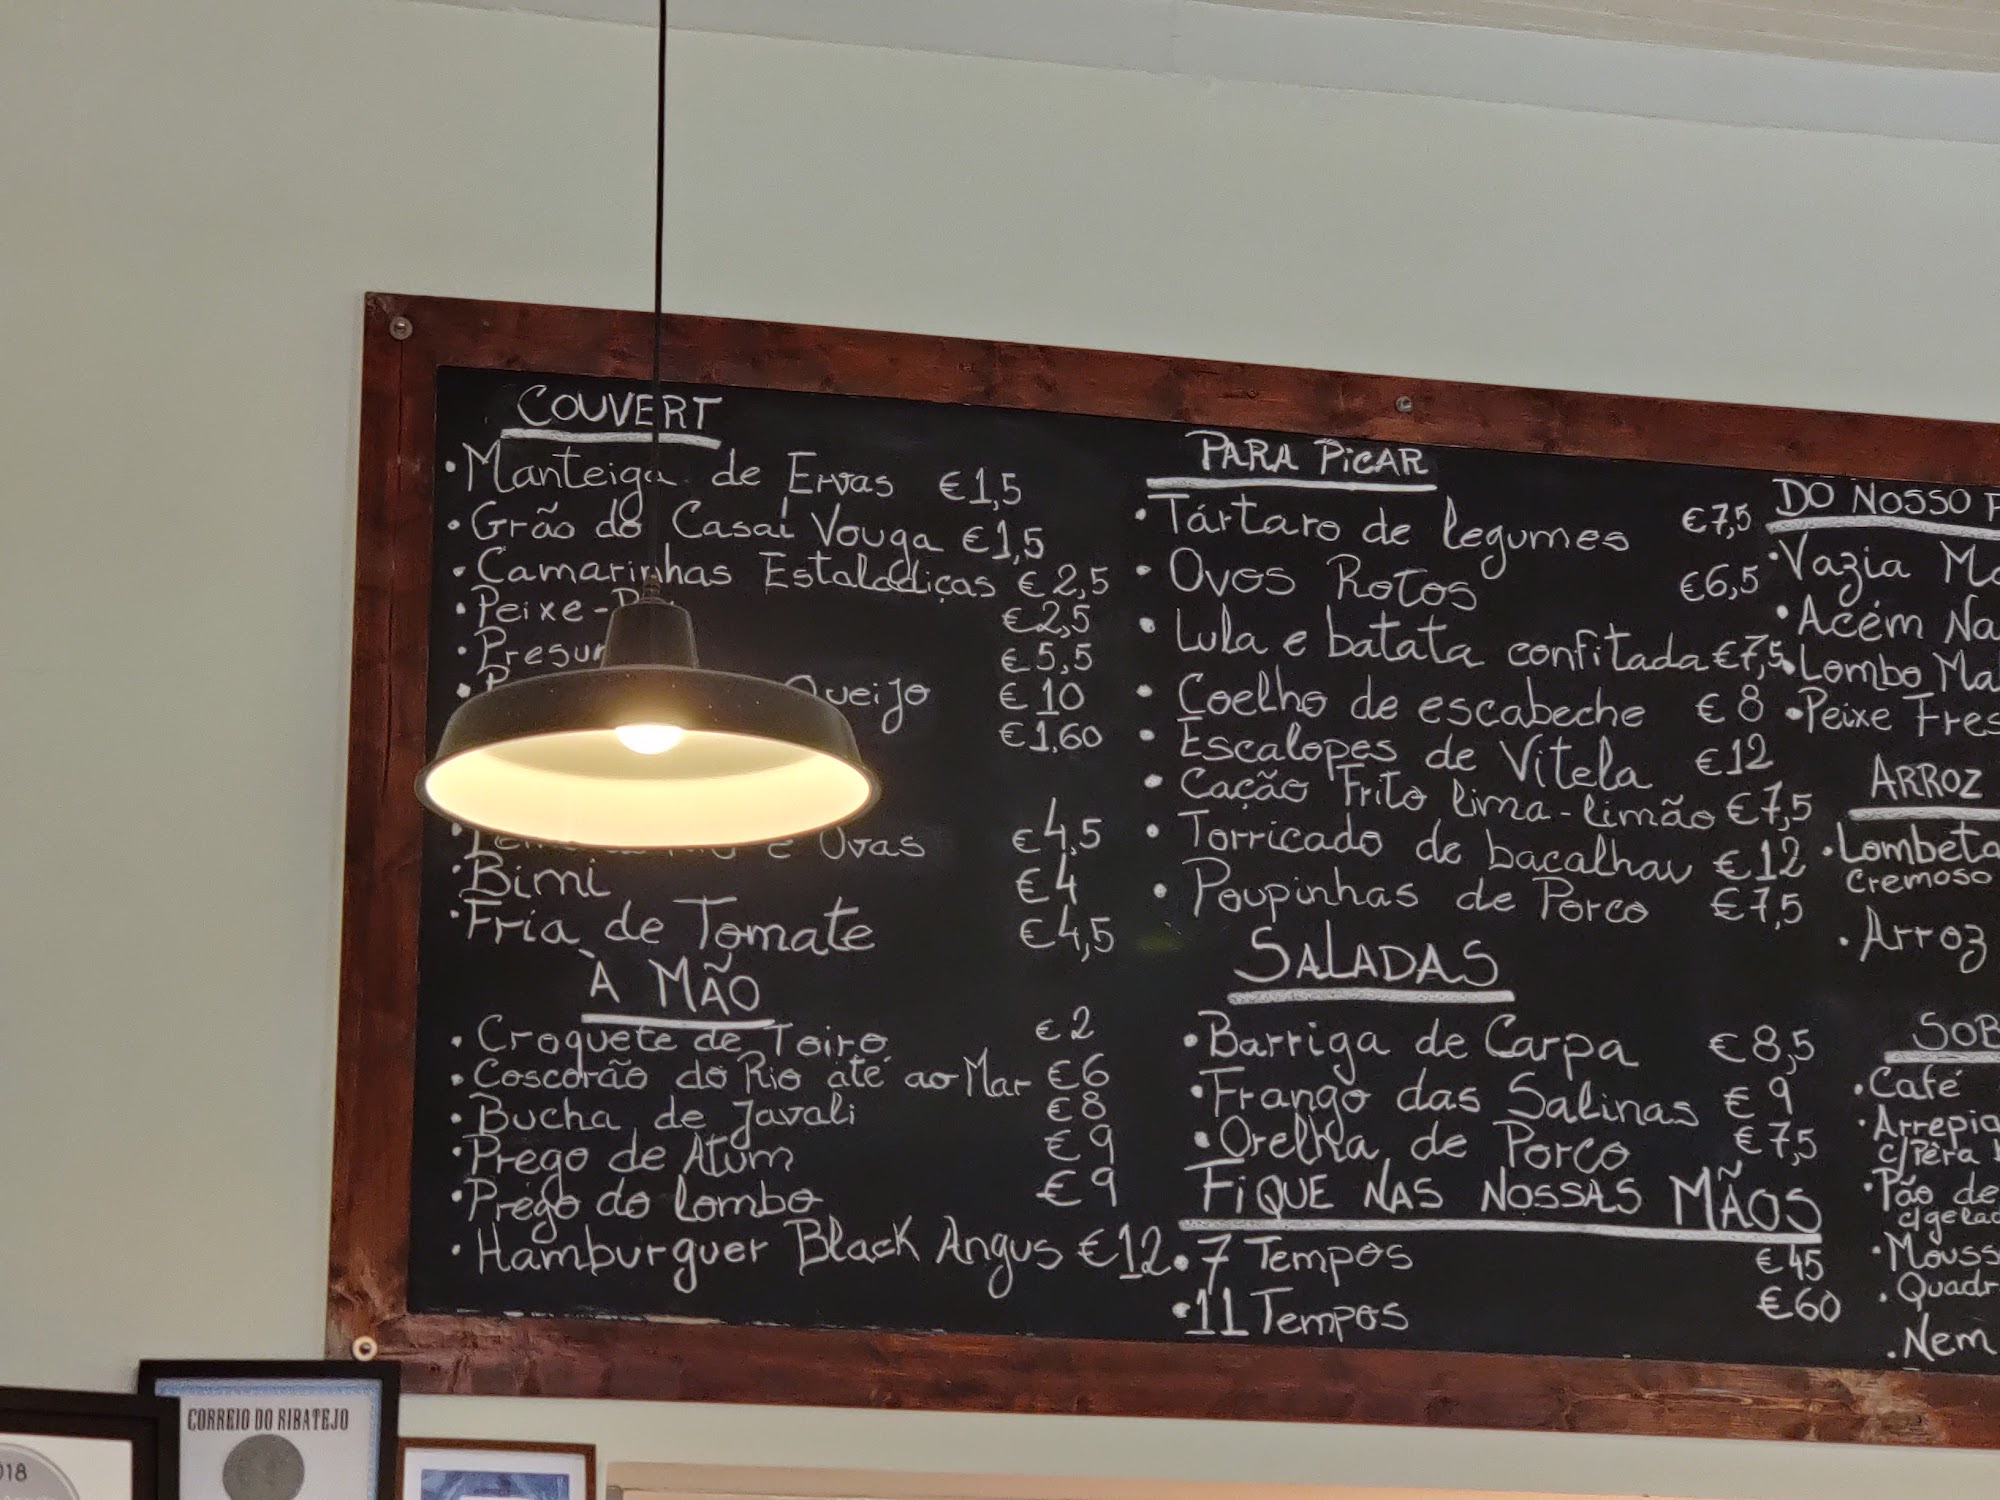 COUVERT
• Manteiga de Ervas €1,5
• Grão do Casal Vouga €1,5
• Camarinhas Estaladiças €2,5
• Peixe- €2,5
• €5,5
• Queijo €10
€1,60
e Ovas €4,5
• Bimi €4
• Fria de Tomate €4,5
À MÃO
• Croquete de Toiro €2
• Coscorão do Rio até ao Mar €6
• Bucha de Javali €8
• Prego de Atum €9
• Prego do lombo €9
• Hamburguer Black Angus €12
PARA PICAR
• Tártaro de legumes €7,5
• Ovos Rotos €6,5
• Lula e batata confitada €7,5
• Coelho de escabeche €8
• Escalopes de Vitela €12
• Cação Frito lima-limão €7,5
• Torricado de bacalhau €12
• Poupinhas de Porco €7,5
SALADAS
• Barriga de Carpa €8,5
• Frango das Salinas €9
• Orelha de Porco €7,5
FIQUE NAS NOSSAS MÃOS
• 7 Tempos €45
• 11 Tempos €60
DO NOSSO
• Vazia
• Acém
• Lombo
• Peixe
ARROZ
• Lombeta
Cremoso
• Arroz
• Café
c/Pêra
• Pão de
• Nem
CORREIO DO RIBATEJO